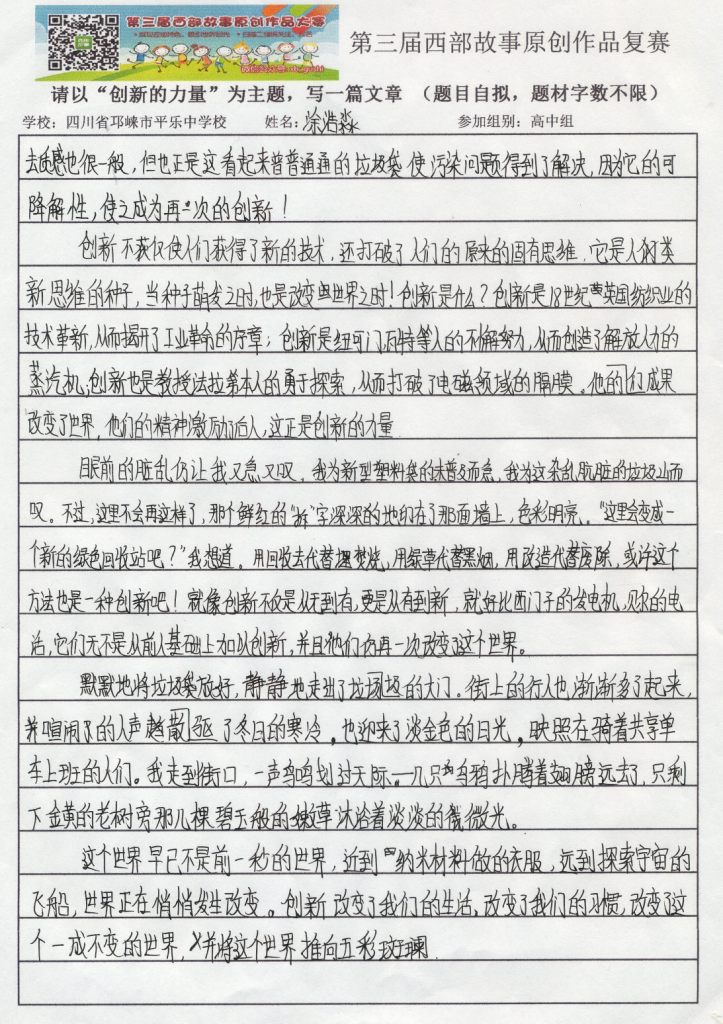 第三届西部故事原创作品大赛
第三届西部故事原创作品复赛
请以“创新的力量”为主题，写一篇文章 （题目自拟，题材字数不限）
学校：四川省邛崃市平乐中学校 姓名：涂浩淼 参加组别：高中组
去质感也很一般，但也正是这看起来普普通通的垃圾袋使污染问题得到了解决，因为它的可
降解性，使之成为再一次的创新！
创新不获仅使人们获得了新的技术，还打破了人们的原来的固有思维，它是人类
新思维的种子，当种子萌发之时，也是改变世界之时！创新是什么？创新是18世纪英国纺织业的
技术革新，从而揭开了工业革命的序章；创新是纽可门、瓦特等人的不懈努力，从而创造了解放人力的
蒸汽机；创新也是教授法拉第本人的勇于探索，从而打破了电磁领域的隔膜。他的们成果
改变了世界，他们的精神激励了后人，这正是创新的力量
眼前的脏乱仍让我又急又叹，我为新型塑料袋的未普及而急，我为这杂乱肮脏的垃圾山而
叹。不过，这里不会再这样了，那个鲜红的“拆”字深深的地印在了那面墙上，色彩明亮。“这里会变成一
个新的绿色回收站吧？”我想道。用回收去代替焚烧，用绿草代替黑烟，用改造代替废除，或许这个
方法也是一种创新吧！就像创新不仅是从无到有，更是从有到新，就好比西门子的发电机，贝尔的电
话，它们无不是从前人基础上加以创新，并且他们仍再一次改变了这个世界。
默默地将垃圾袋放好，静静地走出了垃圾场的大门。街上的行人也渐渐多了起来，
喧闹了的人声趋散了冬日的寒冷，也迎来了淡金色的日光，映照在骑着共享单
车上班的人们。我走到街口，一声鸟鸣划过天际。一几只乌鸦扑腾着翅膀远去了，只剩
下金黄的老树旁那几棵碧玉般的嫩草沐浴着淡淡的微光。
这个世界早已不是前一秒的世界，近到纳米材料做的衣服，远到探索宇宙的
飞船，世界正在悄悄发生改变。创新改变了我们的生活，改变了我们的习惯，改变了这
个一成不变的世界，并将这个世界推向五彩斑斓